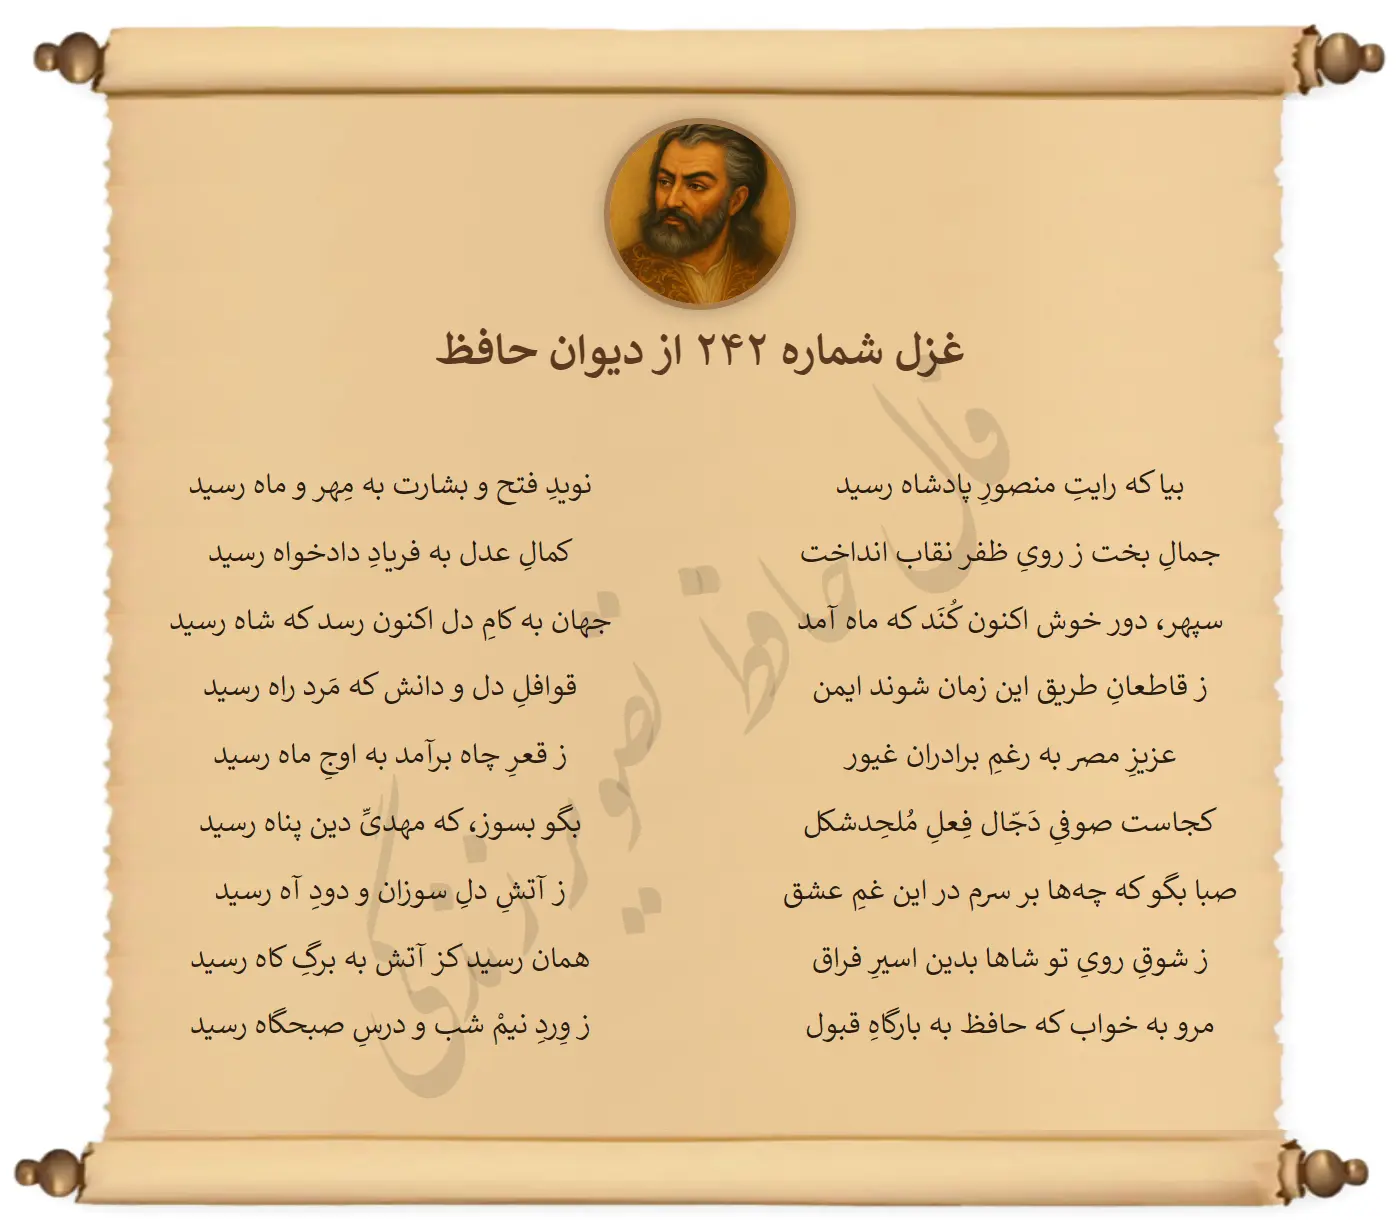 غزل شماره ۲۴۲ از دیوان حافظ
بیا که رایتِ منصورِ پادشاه رسید
نویدِ فتح و بشارت به مِهر و ماه رسید
جمالِ بخت ز رویِ ظفر نقاب انداخت
کمالِ عدل به فریادِ دادخواه رسید
سپهر، دور خوش اکنون کُنَد که ماه آمد
جهان به کامِ دل اکنون رسد که شاه رسید
ز قاطعانِ طریق این زمان شوند ایمن
قوافلِ دل و دانش که مَرد راه رسید
عزیزِ مصر به رغمِ برادران غیور
ز قعرِ چاه برآمد به اوجِ ماه رسید
کجاست صوفیِ دَجّال فِعلِ مُلحِدشکل
بگو بسوز، که مهدیِّ دین پناه رسید
صبا بگو که چه‌ها بر سرم در این غمِ عشق
ز آتشِ دلِ سوزان و دودِ آه رسید
ز شوقِ رویِ تو شاها بدین اسیرِ فراق
همان رسید کز آتش به برگِ کاه رسید
مرو به خواب که حافظ به بارگاهِ قبول
ز وِردِ نیمْ شب و درسِ صبحگاه رسید
فال حافظ تصویر زندگی